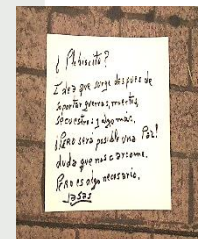 ¿Plebiscito?
Idea que surge después de
soportar guerras, muertes,
secuestros y algo más.
¡Pero será posible una Paz!
duda que nos carcome.
Pero es algo necesario.